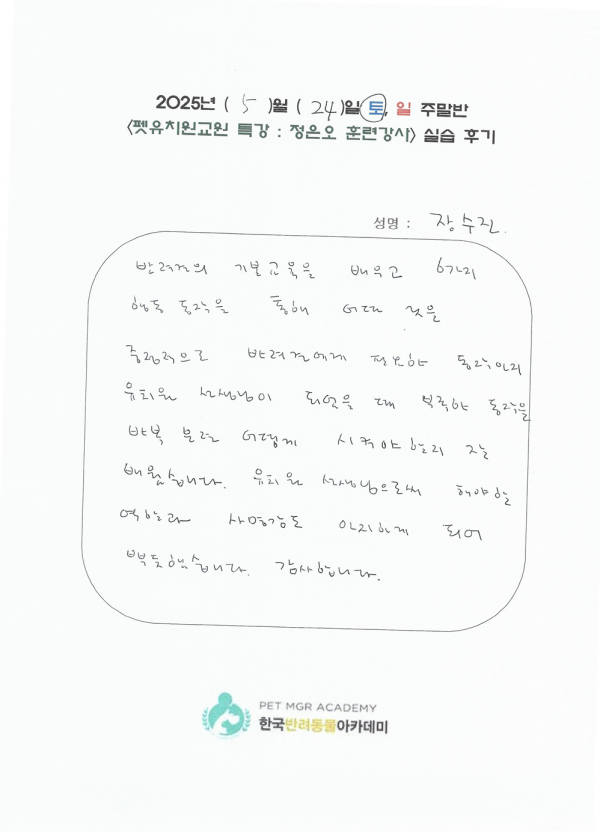 2025년 ( 5 )월 ( 24 )일 토, 일 주말반
<펫유치원교원 특강 : 정은오 훈련강사> 실습 후기
성명 : 장수진.
반려견의 기본교육을 배우고 6가지
행동 동작을 통해 어떤 것을
중점적으로 반려견에게 필요한 동작인지
유치원 선생님이 되었을 때 부족한 동작을
반복 훈련 어떻게 시켜야 할지 잘
배웠습니다. 유치원 선생님으로써 해야할
역할과 사명감도 인지하게 되어
뿌듯했습니다. 감사합니다.
PET MGR ACADEMY
한국반려동물아카데미